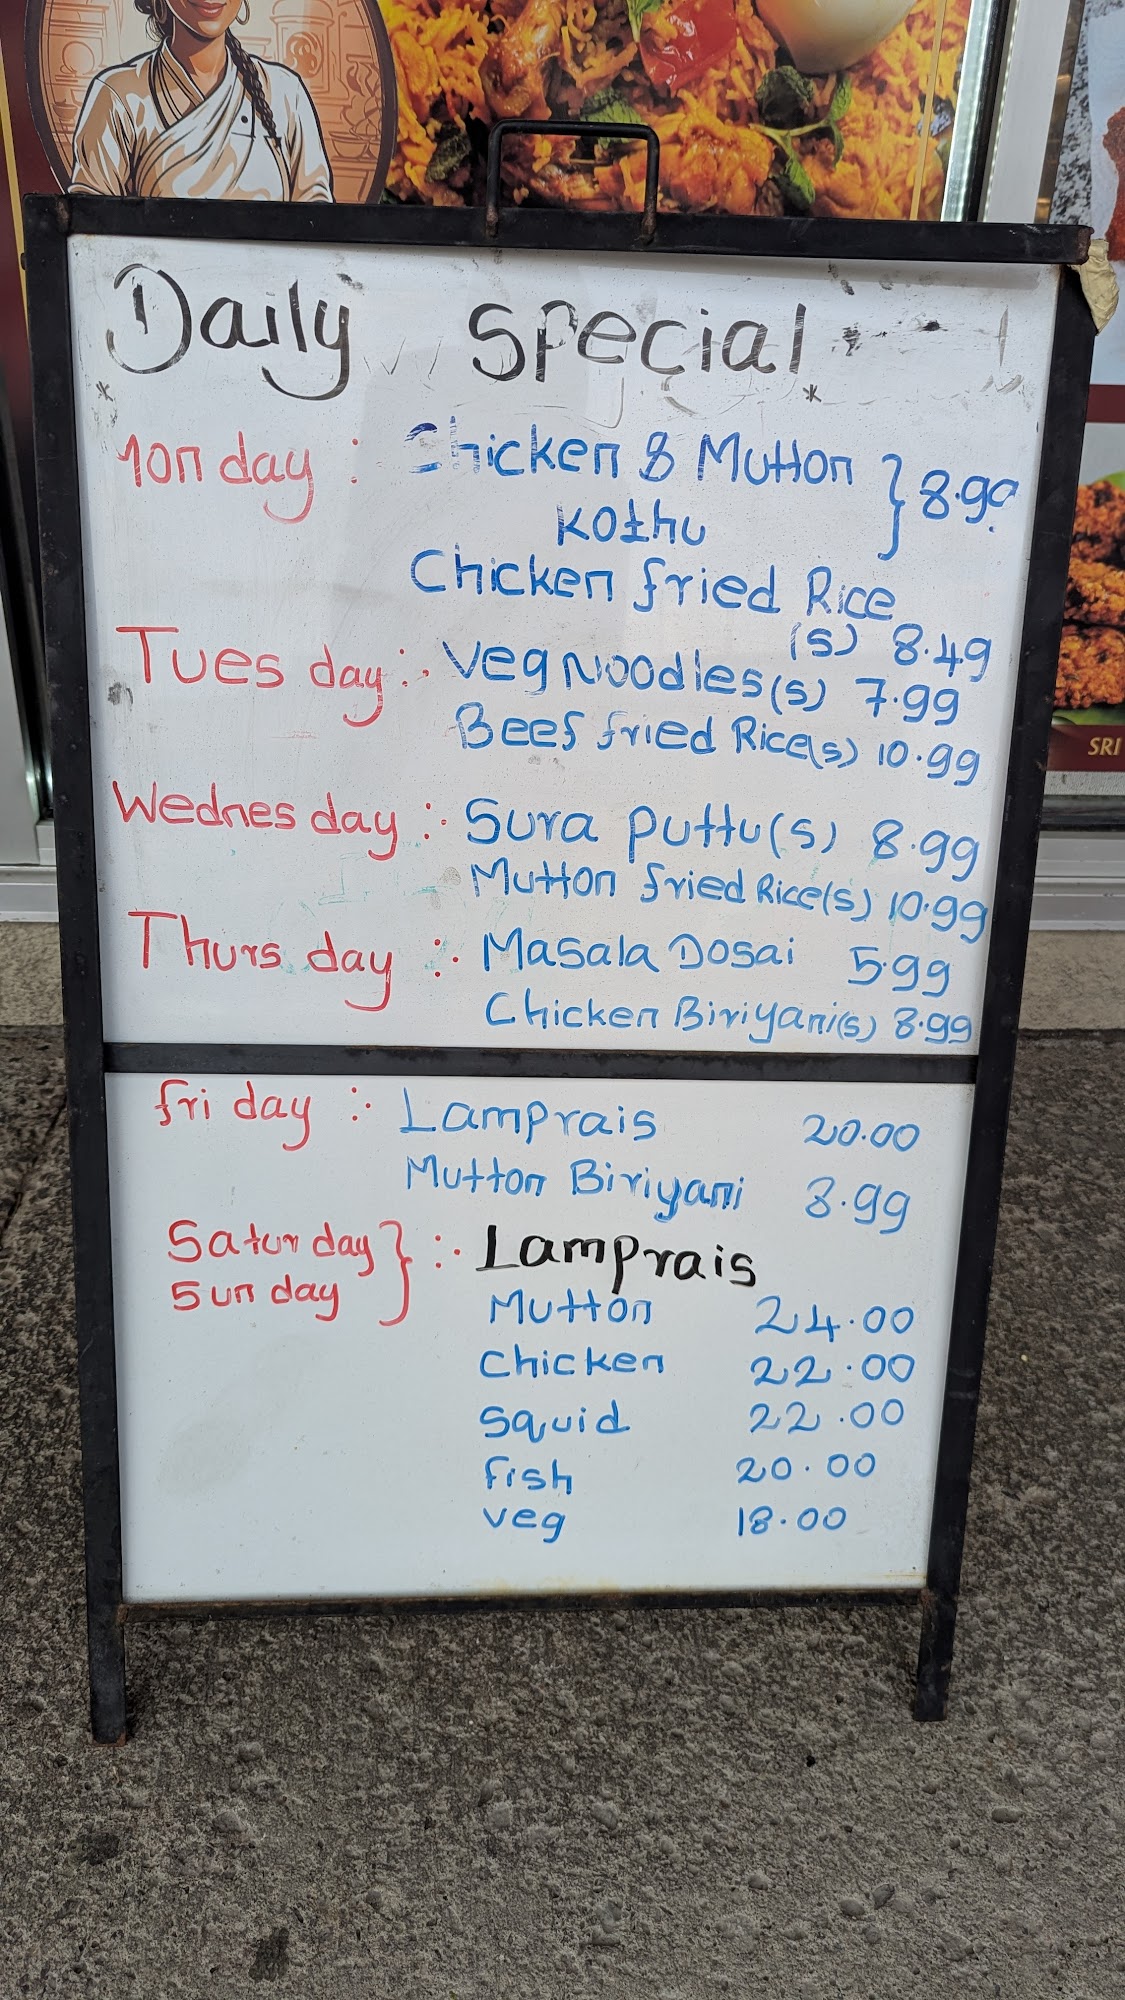 Daily Special
Monday : Chicken & Mutton } 8.99
Kothu
Chicken fried Rice
(s) 8.49
Tuesday :· Veg Noodles(s) 7.99
Beef fried Rice(s) 10.99
Wednesday :· Sura Puttu(s) 8.99
Mutton fried Rice(s) 10.99
Thursday :· Masala Dosai 5.99
Chicken Biriyani(s) 8.99
friday :· Lamprais 20.00
Mutton Biriyani 8.99
Saturday } :· Lamprais
Sunday
Mutton 24.00
Chicken 22.00
Squid 22.00
fish 20.00
veg 18.00
SRI